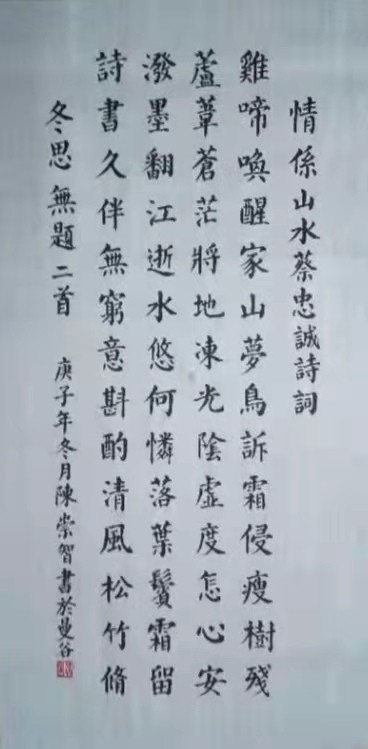 情係山水蔡忠誠詩詞
雞啼喚醒家山夢鳥訴霜侵瘦樹殘
蘆葦蒼茫將地凍光陰虛度怎心安
潑墨翻江逝水悠何憐落葉鬢霜留
詩書久伴無窮意斟酌清風松竹脩
冬思無題二首
庚子年冬月陳崇智書於曼谷